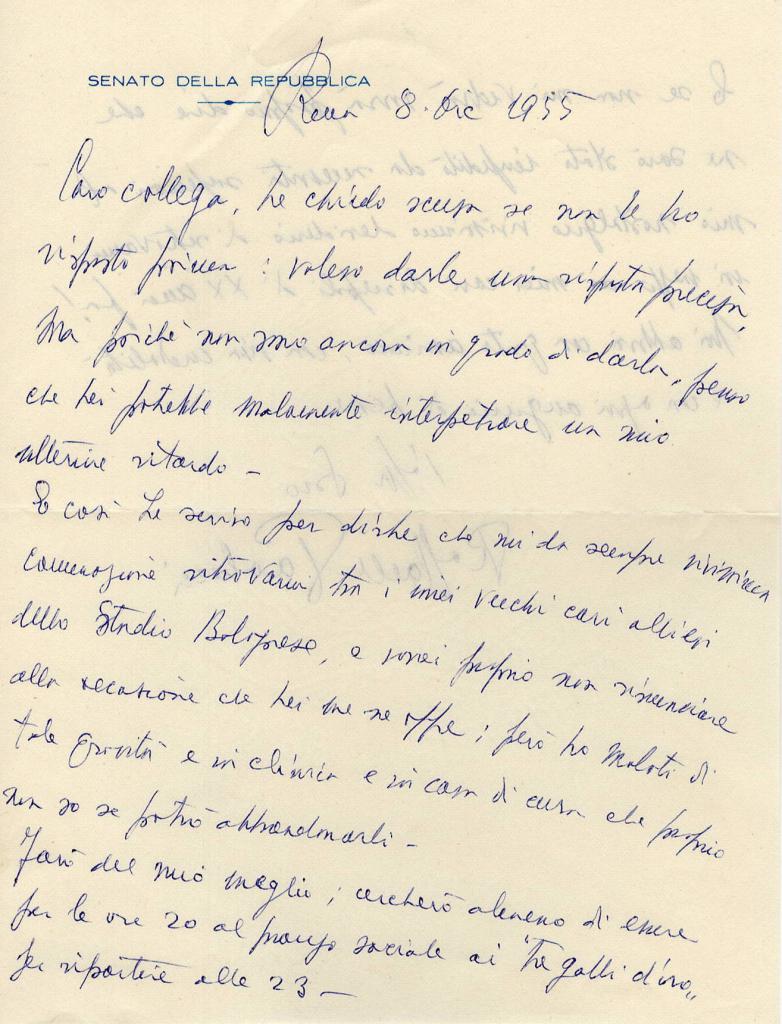 SENATO DELLA REPUBBLICA
Roma 8. Dic 1955
Caro collega, Le chiedo scusa se non Le ho
risposto prima: volevo darle una risposta precisa,
Ma poichè non sono ancora in grado di darla, penso
che Lei potrebbe malamente interpetrare un mio
ulteriore ritardo –
E così Le scrivo per dirle che mi dà sempre vivissima
commozione ritrovarmi tra i miei vecchi cari allievi
dello Studio Bolognese, e vorrei proprio non rinunciare
alla occasione che Lei me ne offre; però ho malati di
tale gravità e in clinica e in casa di cura che proprio
non so se potrò abbandonarli –
Farò del mio meglio; cercherò almeno di essere
per le ore 20 al pranzo sociale ai "Tre galli d'oro„
per ripartire alle 23 –